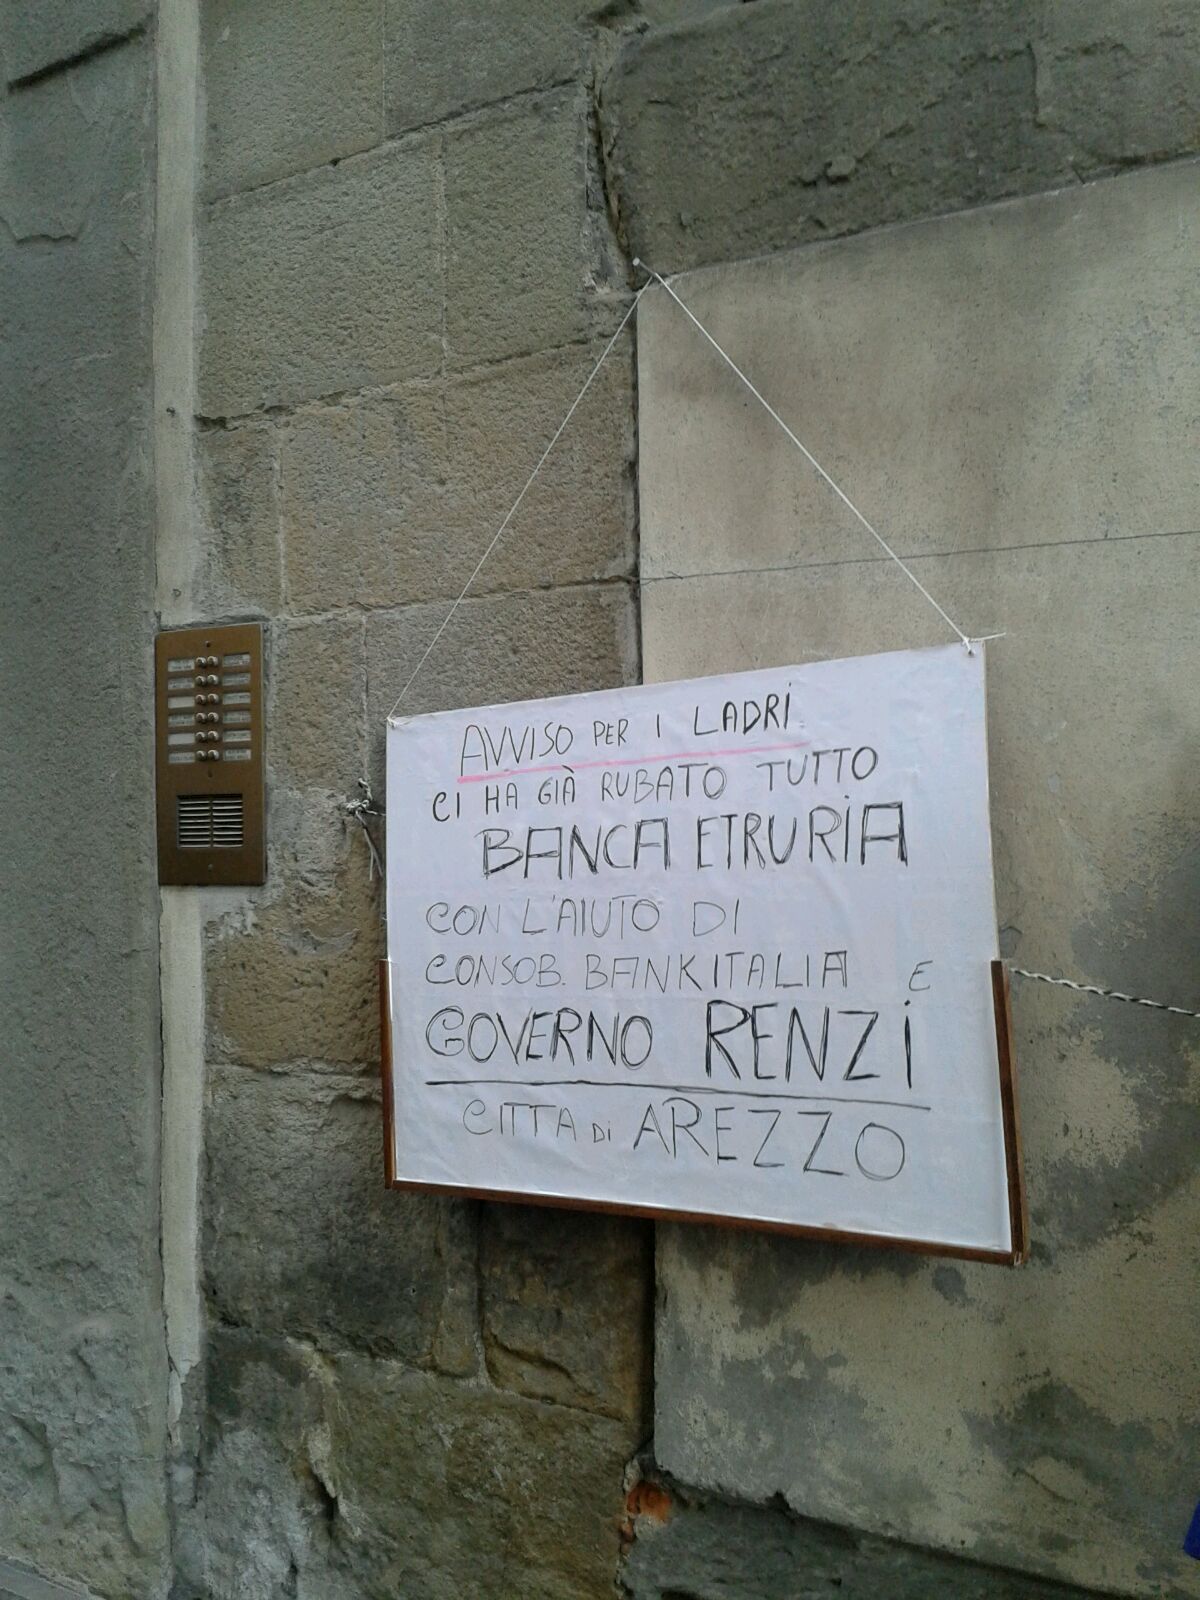 AVVISO PER I LADRI
CI HA GIÀ RUBATO TUTTO
BANCA ETRURIA
CON L'AIUTO DI
CONSOB. BANKITALIA E
GOVERNO RENZI
CITTA DI AREZZO